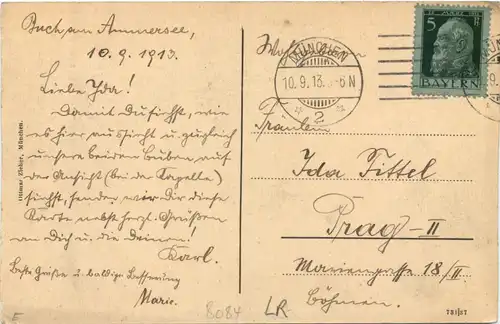 Buch am Ammersee,
10.9.1913.
Liebe Ida!
Damit Du siehst, wie
es hier aussieht u. zugleich
unsere beiden Buben auf
der Ansicht (bei der Kapelle)
siehst, senden wir Dir diese
Karte nebst herzl. Grüßen
an Dich u. die Deinen.
Karl.
Beste Grüße u. baldige Besserung
Marie.
Ottmar Zieher, München.
MÜNCHEN
10.9.13. 5-6 N
* 2 *
5
BAYERN
Fräulein
Ida Tittel
Prag - II
Mariengasse 18/II
Böhmen.
8084
LR
781/27